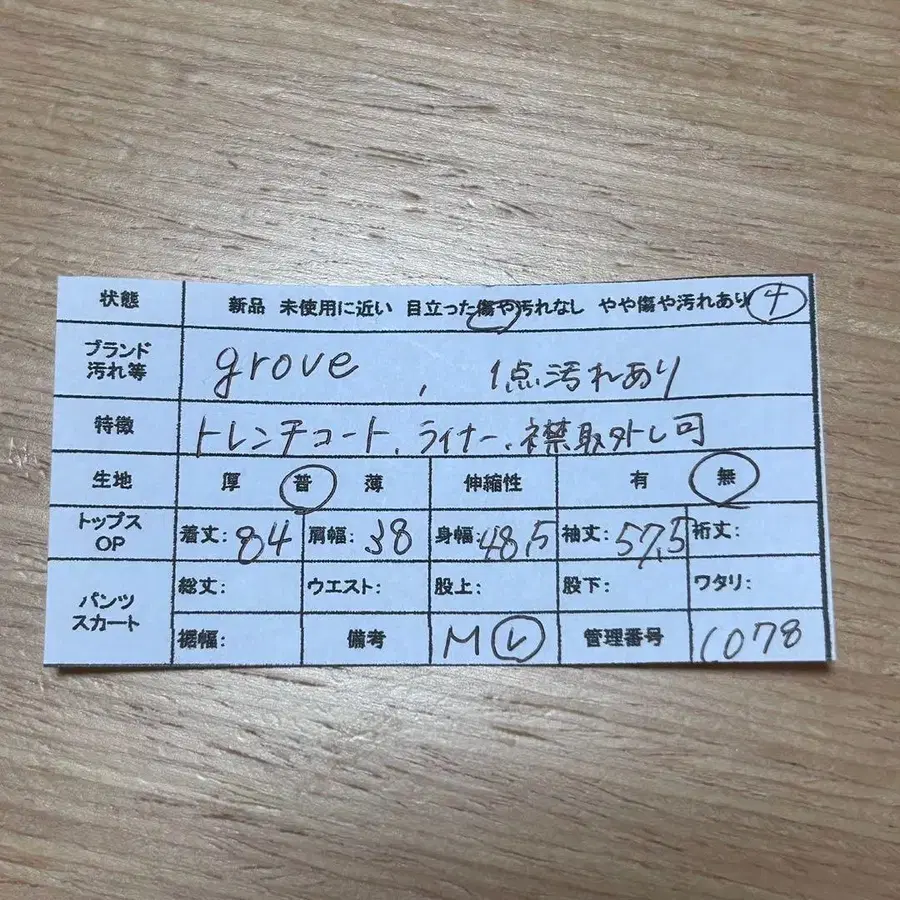 状態 新品 未使用に近い 目立った傷や汚れなし やや傷や汚れあり 4
ブランド 汚れ等 grove , 1点汚れあり
特徴 トレンチコート、ライナー、襟取外し可
生地 厚 普 薄 伸縮性 有 無
トップス OP 着丈: 84 肩幅: 38 身幅: 48,5 袖丈: 57,5 裄丈:
パンツ スカート 総丈: ウエスト: 股上: 股下: ワタリ:
裾幅: 備考 M レ 管理番号 1078